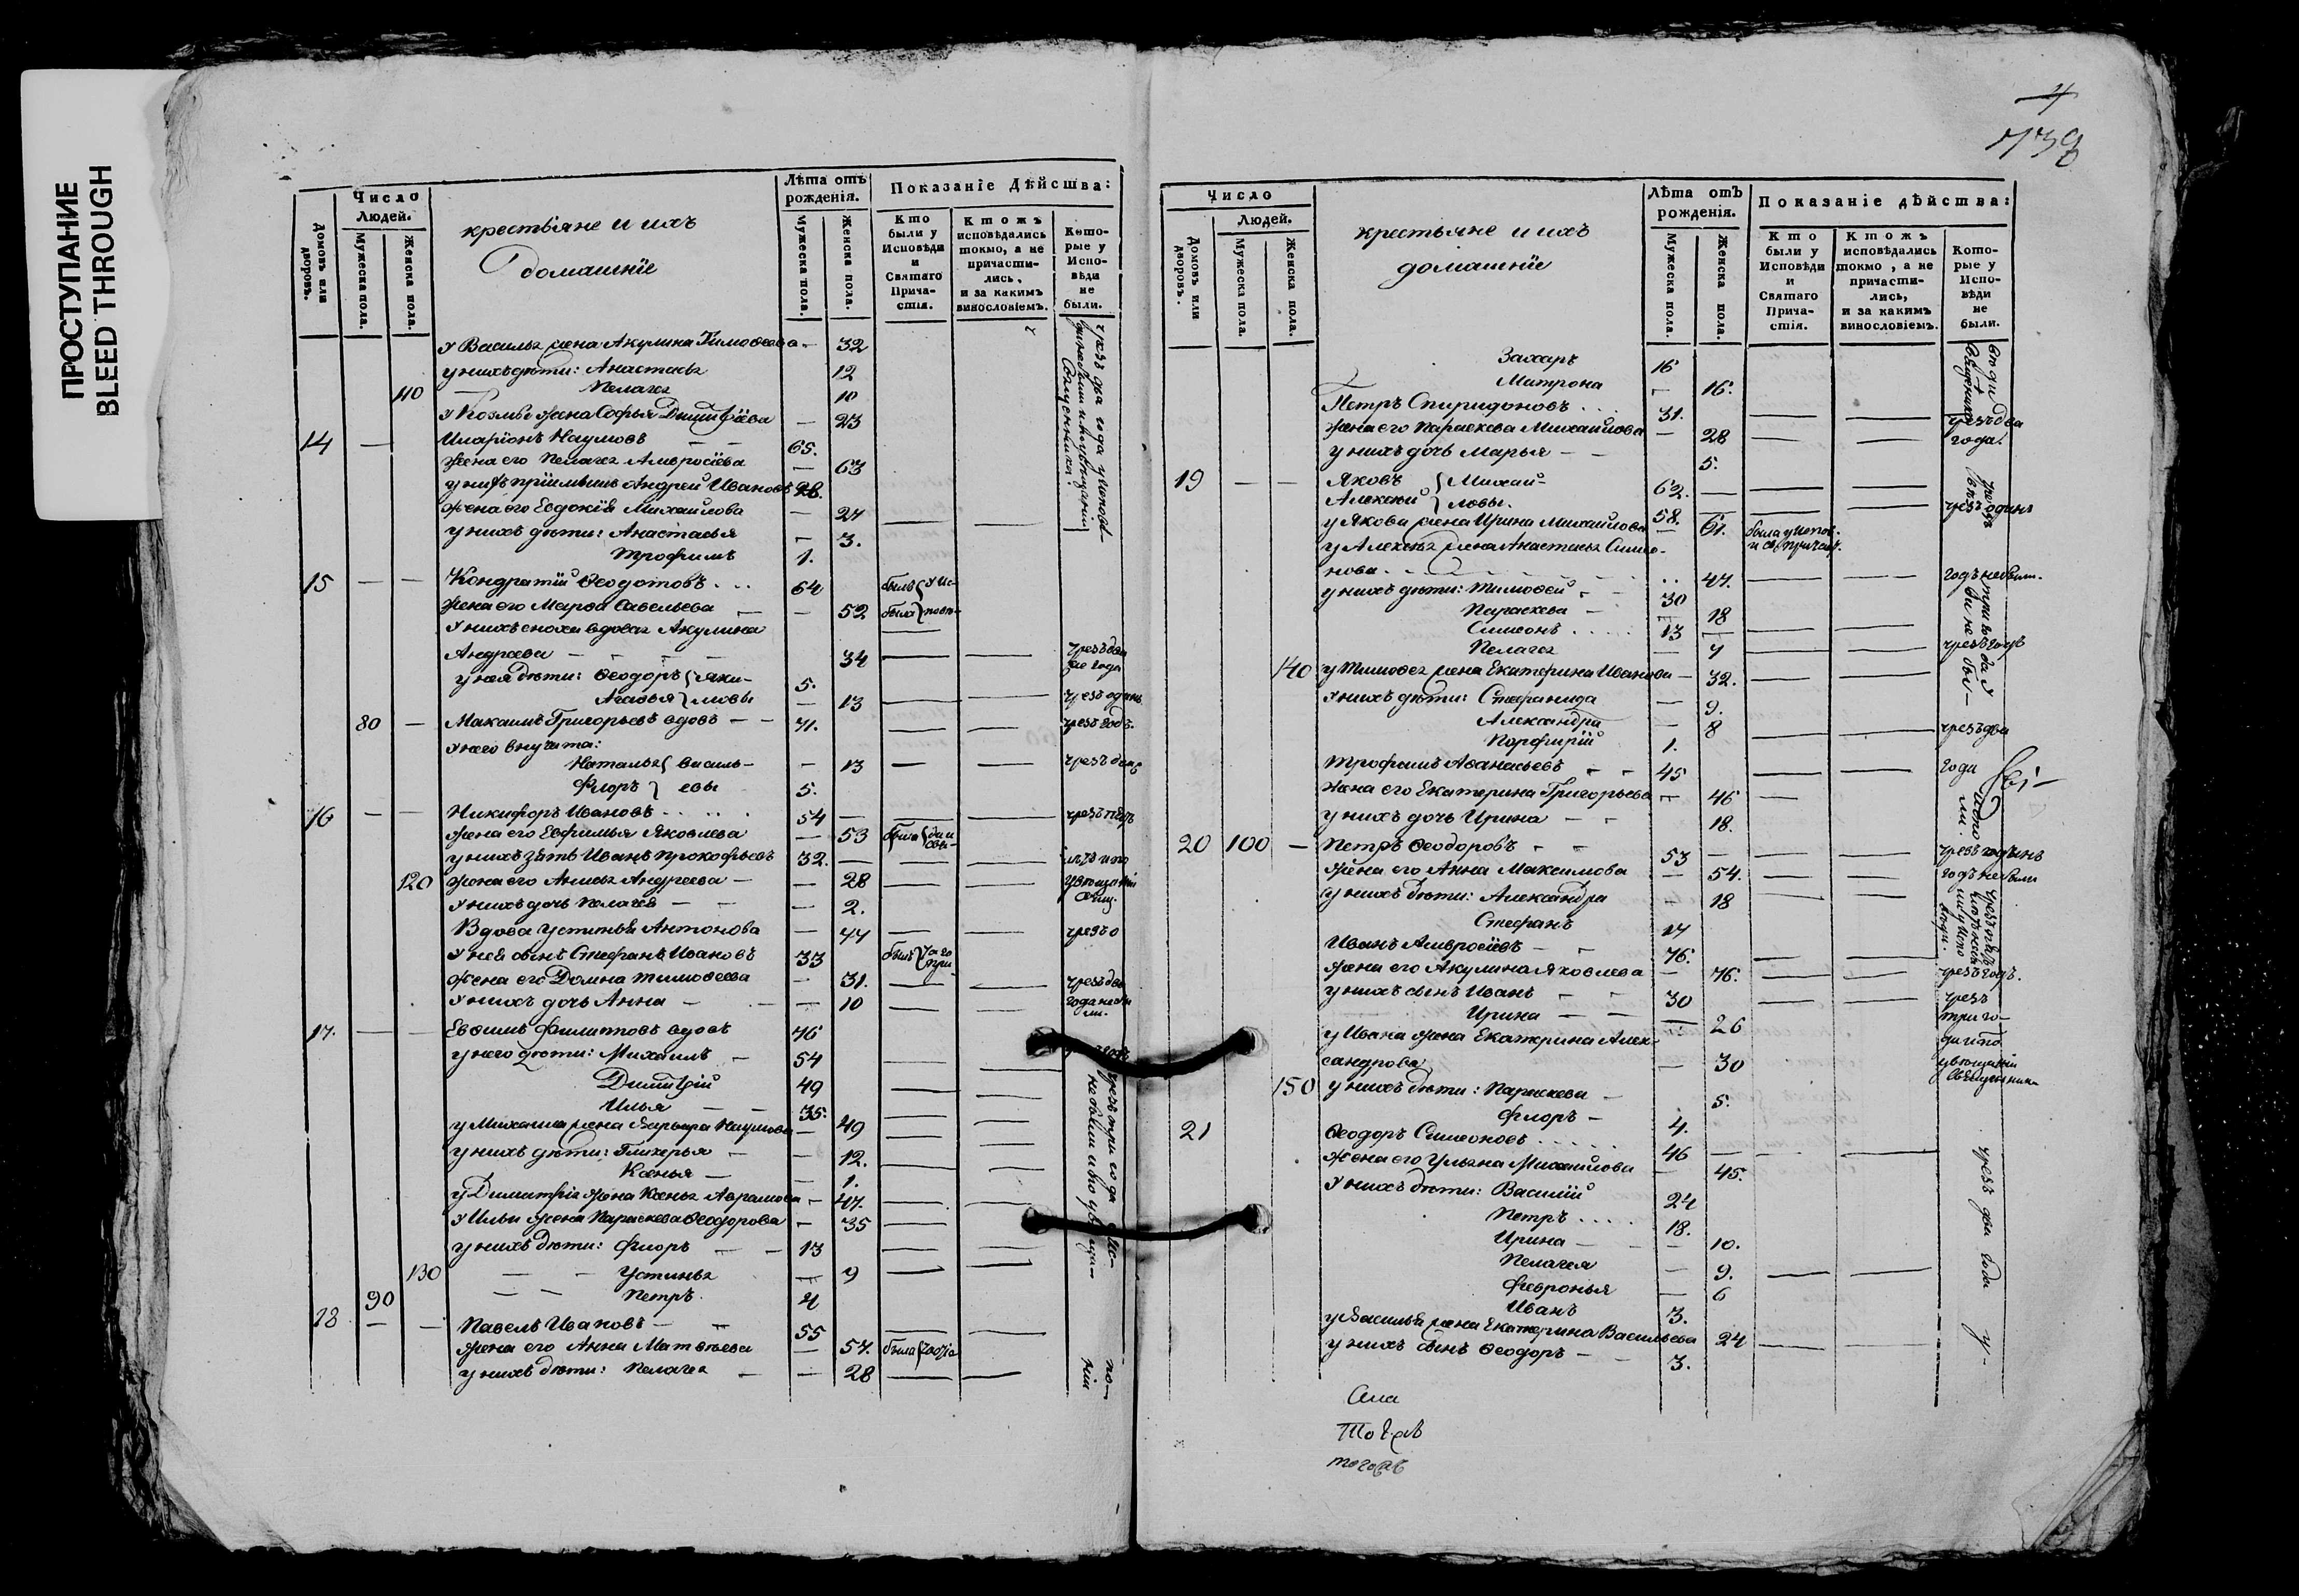 ПРОСТУПАНИЕ
BLEED THROUGH
Число
Людей.
Домовъ или дворовъ.
Мужеска пола.
Женска пола.
крестьяне и ихъ
домашнїе
Лѣта отъ рожденія.
Мужеска пола.
Женска пола.
Показаніе Дѣйства:
Кто были у Исповѣди и Святаго Причастія.
Ктожъ исповѣдались токмо, а не причастились, и за какимъ винословіемъ.
Которые у Исповѣди не были.
у Василья жена Акулина Тимоѳеева - 32
у нихъ дѣти: Анастасья 12
110 — Пелагея 10
у Козьмы жена Софья Димитріева — 23
14 — Иларіонъ Наумовъ 65.
жена его Пелагея Амвросіева — 63
у нихъ пріимышъ Андрей Ивановъ 28.
жена его Евдокія Михайлова — 24
у нихъ дѣти: Анастасья — 3.
Трофимъ 1.
15 — — Кондратій Ѳеодотовъ 64
жена его Марѳа Савельева — 52
у нихъ сноха вдова Акулина
Андреева 34
у нея дѣти: Ѳеодоръ 5.
Агаѳья — 13 чрезъ одинъ
80 — Максимъ Григорьевъ вдовъ 71. чрезъ годъ.
у него внучата:
Наталья Василь- — 13
Флоръ евы 5.
16 — — Никифоръ Ивановъ 54
жена его Евфимья Яковлева — 53
у нихъ зять Иванъ Прокофьевъ 32.
120 жена его Анисья Андреева — 28
у нихъ дочь Пелагея — 2.
Вдова Устинья Антонова — 44
у нея сынъ Стефанъ Ивановъ 33
жена его Домна Тимоѳеева — 31.
у нихъ дочь Анна — 10
17. — — Евѳимъ Филипповъ вдовъ 76
у него дѣти: Михаилъ 54
Димитрій 49
Илья 35.
у Михаила жена Варвара Наумова — 49
у нихъ дѣти: Гликерья — 12.
Ксенья — 1.
у Димитрія жена Ксенья Аврамова — 47.
у Ильи жена Параскева Ѳеодорова — 35
у нихъ дѣти: Флоръ 13
130 Устинья — 9
90 Петръ. 4
18 — — Павелъ Ивановъ 55
жена его Анна Матвѣева — 57. была
у нихъ дѣти: Пелагея — 28
739
Число
Людей.
Домовъ или дворовъ.
Мужеска пола.
Женска пола.
крестьяне и ихъ
домашнїе
Лѣта отъ рожденія.
Мужеска пола.
Женска пола.
Показаніе дѣйства:
Кто были у Исповѣди и Святаго Причастія.
Ктожъ исповѣдались токмо, а не причастились, и за какимъ винословіемъ.
Которые у Исповѣди не были.
Захаръ 16
Матрона — 16.
Петръ Спиридоновъ 31. чрезъ два
жена его Параскева Михайлова — 28 года.
у нихъ дочь Марья 5.
19 — — Яковъ Михай- 62.
Алексѣй ловы. 58. чрезъ одинъ
у Якова жена Ирина Михайлова — 61. была у испов. и св. причаст.
у Алексѣя жена Анастасья Симео-
нова 47. годъ не был.
у нихъ дѣти: Тимоѳей 30
Параскева 18
Симеонъ 13
Пелагея — 7 чрезъ годъ
140 у Тимоѳея жена Екатерина Иванова — 32.
у нихъ дѣти: Стефанида — 9.
Александра — 8 чрезъ два
Порфирій 1.
Трофимъ Аѳанасьевъ 45 года
жена его Екатерина Григорьева — 46
у нихъ дочь Ирина 18.
20 100 — Петръ Ѳеодоровъ 53
жена его Анна Максимова — 54. годъ не были
у нихъ дѣти: Александра — 18
Стефанъ 17
Иванъ Амвросіевъ 76.
жена его Акулина Яковлева — 76. чрезъ годъ.
у нихъ сынъ Иванъ 30 чрезъ
Ирина — 26 три го-
у Ивана жена Екатерина Алек-
сандрова — 30
150 у нихъ дѣти: Параскева 5.
Флоръ 4.
21 Ѳеодоръ Симеоновъ 46
жена его Ульяна Михайлова — 45.
у нихъ дѣти: Василій 24
Петръ 18.
Ирина — 10.
Пелагея — 9.
Февронья — 6
Иванъ 3.
у Василья жена Екатерина Васильева 24
у нихъ сынъ Ѳеодоръ 3.
чрезъ два года у-